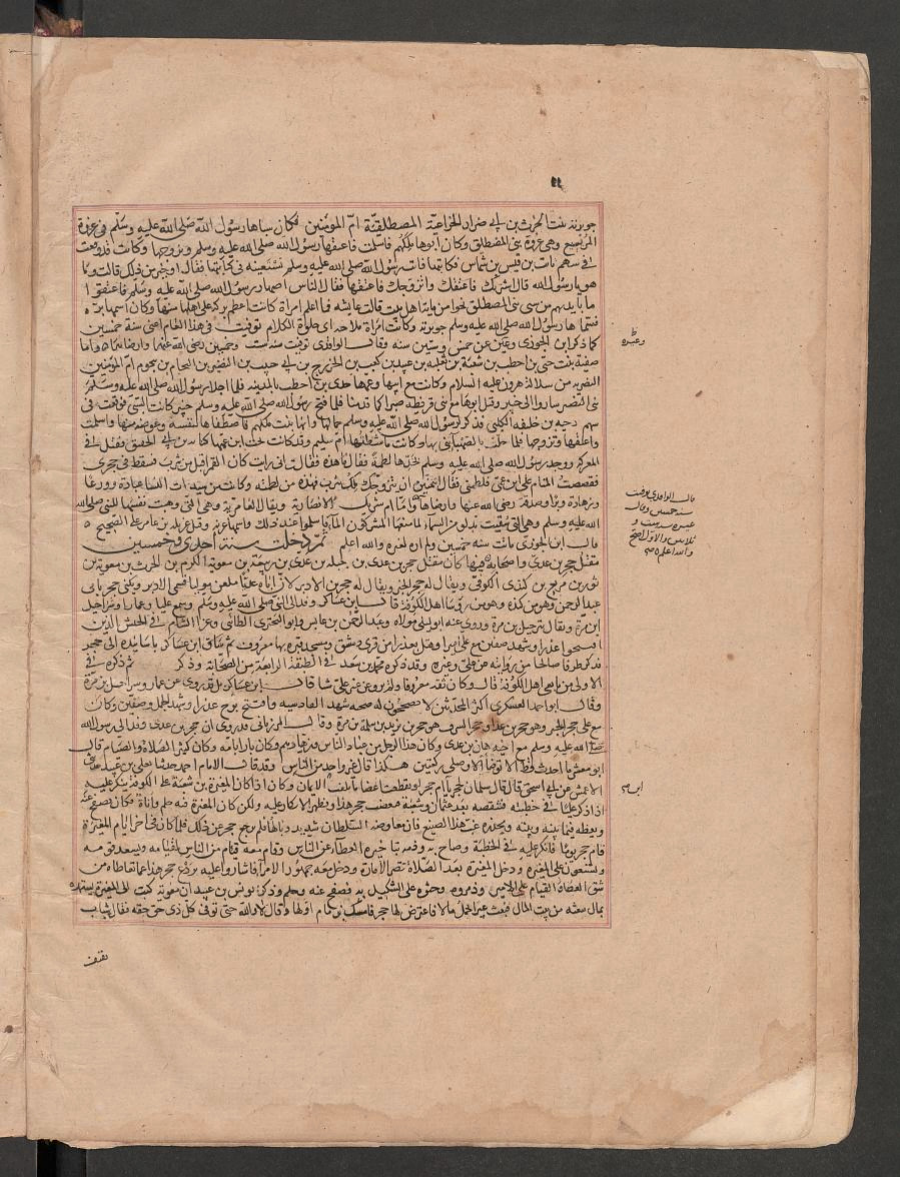 جويرية بنت الحرث بن ابي ضرار الخزاعية المصطلقية ام المومنين فكان سباها رسول الله صلى الله عليه وسلم في غزوة
المريسيع وهي غزوة بني المصطلق وكان ابوها ملكهم فاسلمت فاعتقها رسول الله صلى الله عليه وسلم وتزوجها وكانت قد وقعت
في سهم ثابت بن قيس بن شماس فكاتبها فاتت رسول الله صلى الله عليه وسلم تستعينه في كتابتها فقال او خير من ذلك قالت وما
هو يا رسول الله قال اشتريك فاعتقك واتزوجك فاعتقها فقال الناس اصهار رسول الله صلى الله عليه وسلم فاعتقوا
ما بايديهم من سبي بني المصطلق نحوا من ماية اهل بيت قالت عايشه فما اعلم امراة كانت اعظم بركة على اهلها منها وكان اسمها برة
فسماها رسول الله صلى الله عليه وسلم جويرية وكانت امراة ملاحة اي حلوة الكلام توفيت في هذا العام اعني سنة خمسين
كما ذكره ابن الجوزي وغيره عن خمس وستين سنه وقال الواقدي توفيت سنة ست وخمسين رضي الله عنها وارضاها واما
صفية بنت حيي بن اخطب بن شعبة بن ثعلبة بن عبيد بن كعب بن الخزرج بن ابي حبيب بن النضير بن النحام بن نحوم ام المومنين
النضرية من سلالة هرون عليه السلام وكانت مع ابيها وعمها جدي بن اخطب بالمدينة فلما اجلا رسول الله صلى الله عليه وسلم
بني النضير ساروا الى خيبر وقتل ابوها مع بني قريظة صبرا كما قدمنا فلما فتح رسول الله صلى الله عليه وسلم خيبر كانت في السبي فوقعت في
سهم دحية بن خليفة الكلبي فذكر لرسول الله صلى الله عليه وسلم جمالها وانها بنت ملكهم فاصطفاها لنفسه وعوضه منها واسلمت
واعتقها وتزوجها فلما حلت بالصهباء بنى بها وكانت ماشطتها ام سليم وقد كانت تحت ابن عمها كنانة بن ابي الحقيق فقتل في
المعركة ووجد رسول الله صلى الله عليه وسلم بخدها لطمة فقال ما هذه فقالت اني رايت كان القمر اقبل من يثرب فسقط في حجري
فقصصت المنام على ابن عمي فلطمني فقال اتتمنين ان يتزوجك ملك يثرب فهذه من لطمته وكانت من سيدات النسا عبادة وورعا
وزهادة وبرا وصدقة رضي الله عنها وارضاها واما ام شريك الانصارية ويقال العامرية وهي التي وهبت نفسها للنبي صلى الله
عليه وسلم
قال ابن الجوزي ماتت سنه خمسين ولم اره لغيره والله اعلم ثم دخلت سنة احدى وخمسين
مقتل حجر بن عدي واصحابه فيها كان مقتل حجر بن عدي بن جبلة بن عدي بن ربيعة بن معوية الاكرم بن الحرث بن معوية بن
ثور بن مرتع بن كندي الكوفي ويقال له حجر الخير ويقال له حجر بن الادبر لان اباه عديا طعن موليا فسمي الادبر ويكنى حجر بابي
عبد الرحمن وهو من كندة وهو من روسا اهل الكوفة قال ابن عساكر وفد الى النبي صلى الله عليه وسلم وسمع عليا وعمارا وشراحيل
ابن مرة ويقال شرحبيل بن مرة وروى عنه ابو ليلى مولاه وعبد الرحمن بن عابس وابو البختري الطائي وغزا الشام في الجيش الذين
افتتحوا عذرا وشهد صفين مع علي اميرا وقتل بعذرا من قرى دمشق ومسجد قبره بها معروف ثم ساق ابن عساكر باسانيده الى حجر
فذكر طرفا صالحا من روايته عن علي وغيره وقد ذكره محمد بن سعد في الطبقة الرابعة من الصحابة وذكر ثم ذكره في
الاولى من تابعي اهل الكوفة قال وكان ثقة معروفا ولم يرو عن غير علي شيا قال ابن عساكر بل قد روى عن عمار وشراحيل بن مرة
وقال ابو احمد العسكري اكثر المحدثين لا يصححون له صحبة شهد القادسية وافتتح برج عذرا وشهد الجمل وصفين وكان
مع علي حجر الخير وهو حجر بن عدي وحجر الشر وهو حجر بن يزيد بن سلمة بن مرة وقال المرزباني قد روي ان حجر بن عدي وفد الى رسول الله
صلى الله عليه وسلم مع اخيه هاني بن عدي وكان هذا الرجل من عباد الناس وزهادهم وكان بارا بامه وكان كثير الصلاة والصيام قال
ابو معشر ما احدث قط الا توضا ولا توضا الا وصلى ركعتين هكذا قال غير واحد من الناس وقد قال الامام احمد حدثنا يعلى بن عبيد حدثني
الاعمش عن ابي اسحق قال قال سلمان لحجر يا ابن ام حجر لو تقطعت اعضاء ما بلغت الايمان وكان اذ كان المغيرة بن شعبة على الكوفة
اذا ذكر عليا في خطبته فتنقصه بعد مدح عثمان وشيعته فيغضب حجر هذا ويظهر الانكار عليه ولكن كان المغيرة فيه حلم واناة فكان يصفح عنه
ويعظه فيما بينه وبينه ويحذره غب هذا الصنيع فان معارضة السلطان شديد وبالها فلم يرجع حجر عن ذلك فلما كان في اخر ايام المغيرة
قام حجر يوما فانكر عليه في الخطبة وصاح به وذمه بتاخيره العطاء عن الناس وقام معه فئام من الناس لقيامه ويصدقونه
ويشنعون على المغيرة ودخل المغيرة بعد الصلاة قصر الامارة ودخل معه جمهور الامراء فاشاروا عليه بردع حجر هذا عما تعاطاه من
شق العصا والقيام على الامير وذمروه وحثوه على التنكيل به فصفح عنه وحلم وذكر يونس بن عبيد ان معوية كتب الى المغيرة يستمده
بمال يبعثه من بيت المال فبعث عيرا تحمل مالا فاعترض لها حجر فامسك بزمام اولها وقال لا والله حتى توفي كل ذي حق حقه فقال شباب
وغيره
قال الواقدي توفيت
سنة خمسين وقال
غيره سنة ست و
ثلاثين والاول اصح
والله اعلم
ثقيف